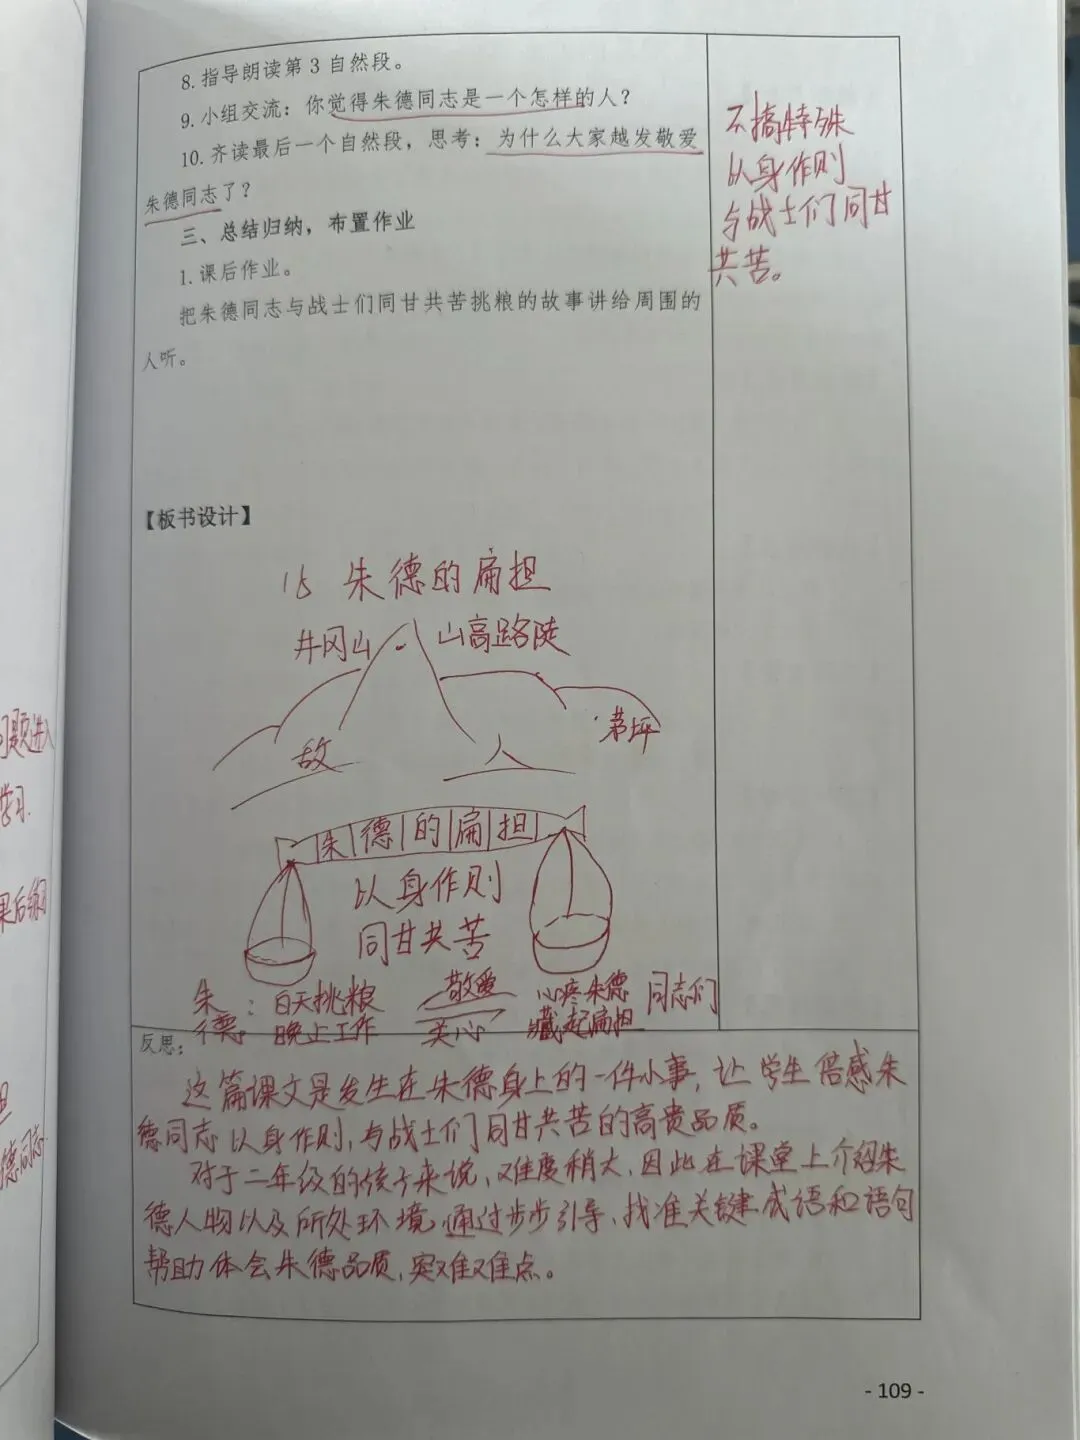 8.指导朗读第3自然段。
9.小组交流：你觉得朱德同志是一个怎样的人？
10.齐读最后一个自然段，思考：为什么大家越发敬爱
朱德同志了？
三、总结归纳，布置作业
1.课后作业。
把朱德同志与战士们同甘共苦挑粮的故事讲给周围的
人听。
不搞特殊
以身作则
与战士们同甘
共苦。
【板书设计】
15 朱德的扁担
井冈山 山高路陡
茅坪
敌 人
朱德的扁担
以身作则
同甘共苦
朱德：白天挑粮 敬爱 心疼朱德 同志们
晚上工作 关心 藏起扁担
反思：
这篇课文是发生在朱德身上的一件小事，让学生倍感朱
德同志以身作则，与战士们同甘共苦的高贵品质。
对于二年级的孩子来说，难度稍大，因此在课堂上介绍朱
德人物以及所处环境，通过步步引导，找准关键成语和语句
帮助体会朱德品质，突难难点。
- 109 -
问题进入
学习.
课后练习
担
德同志